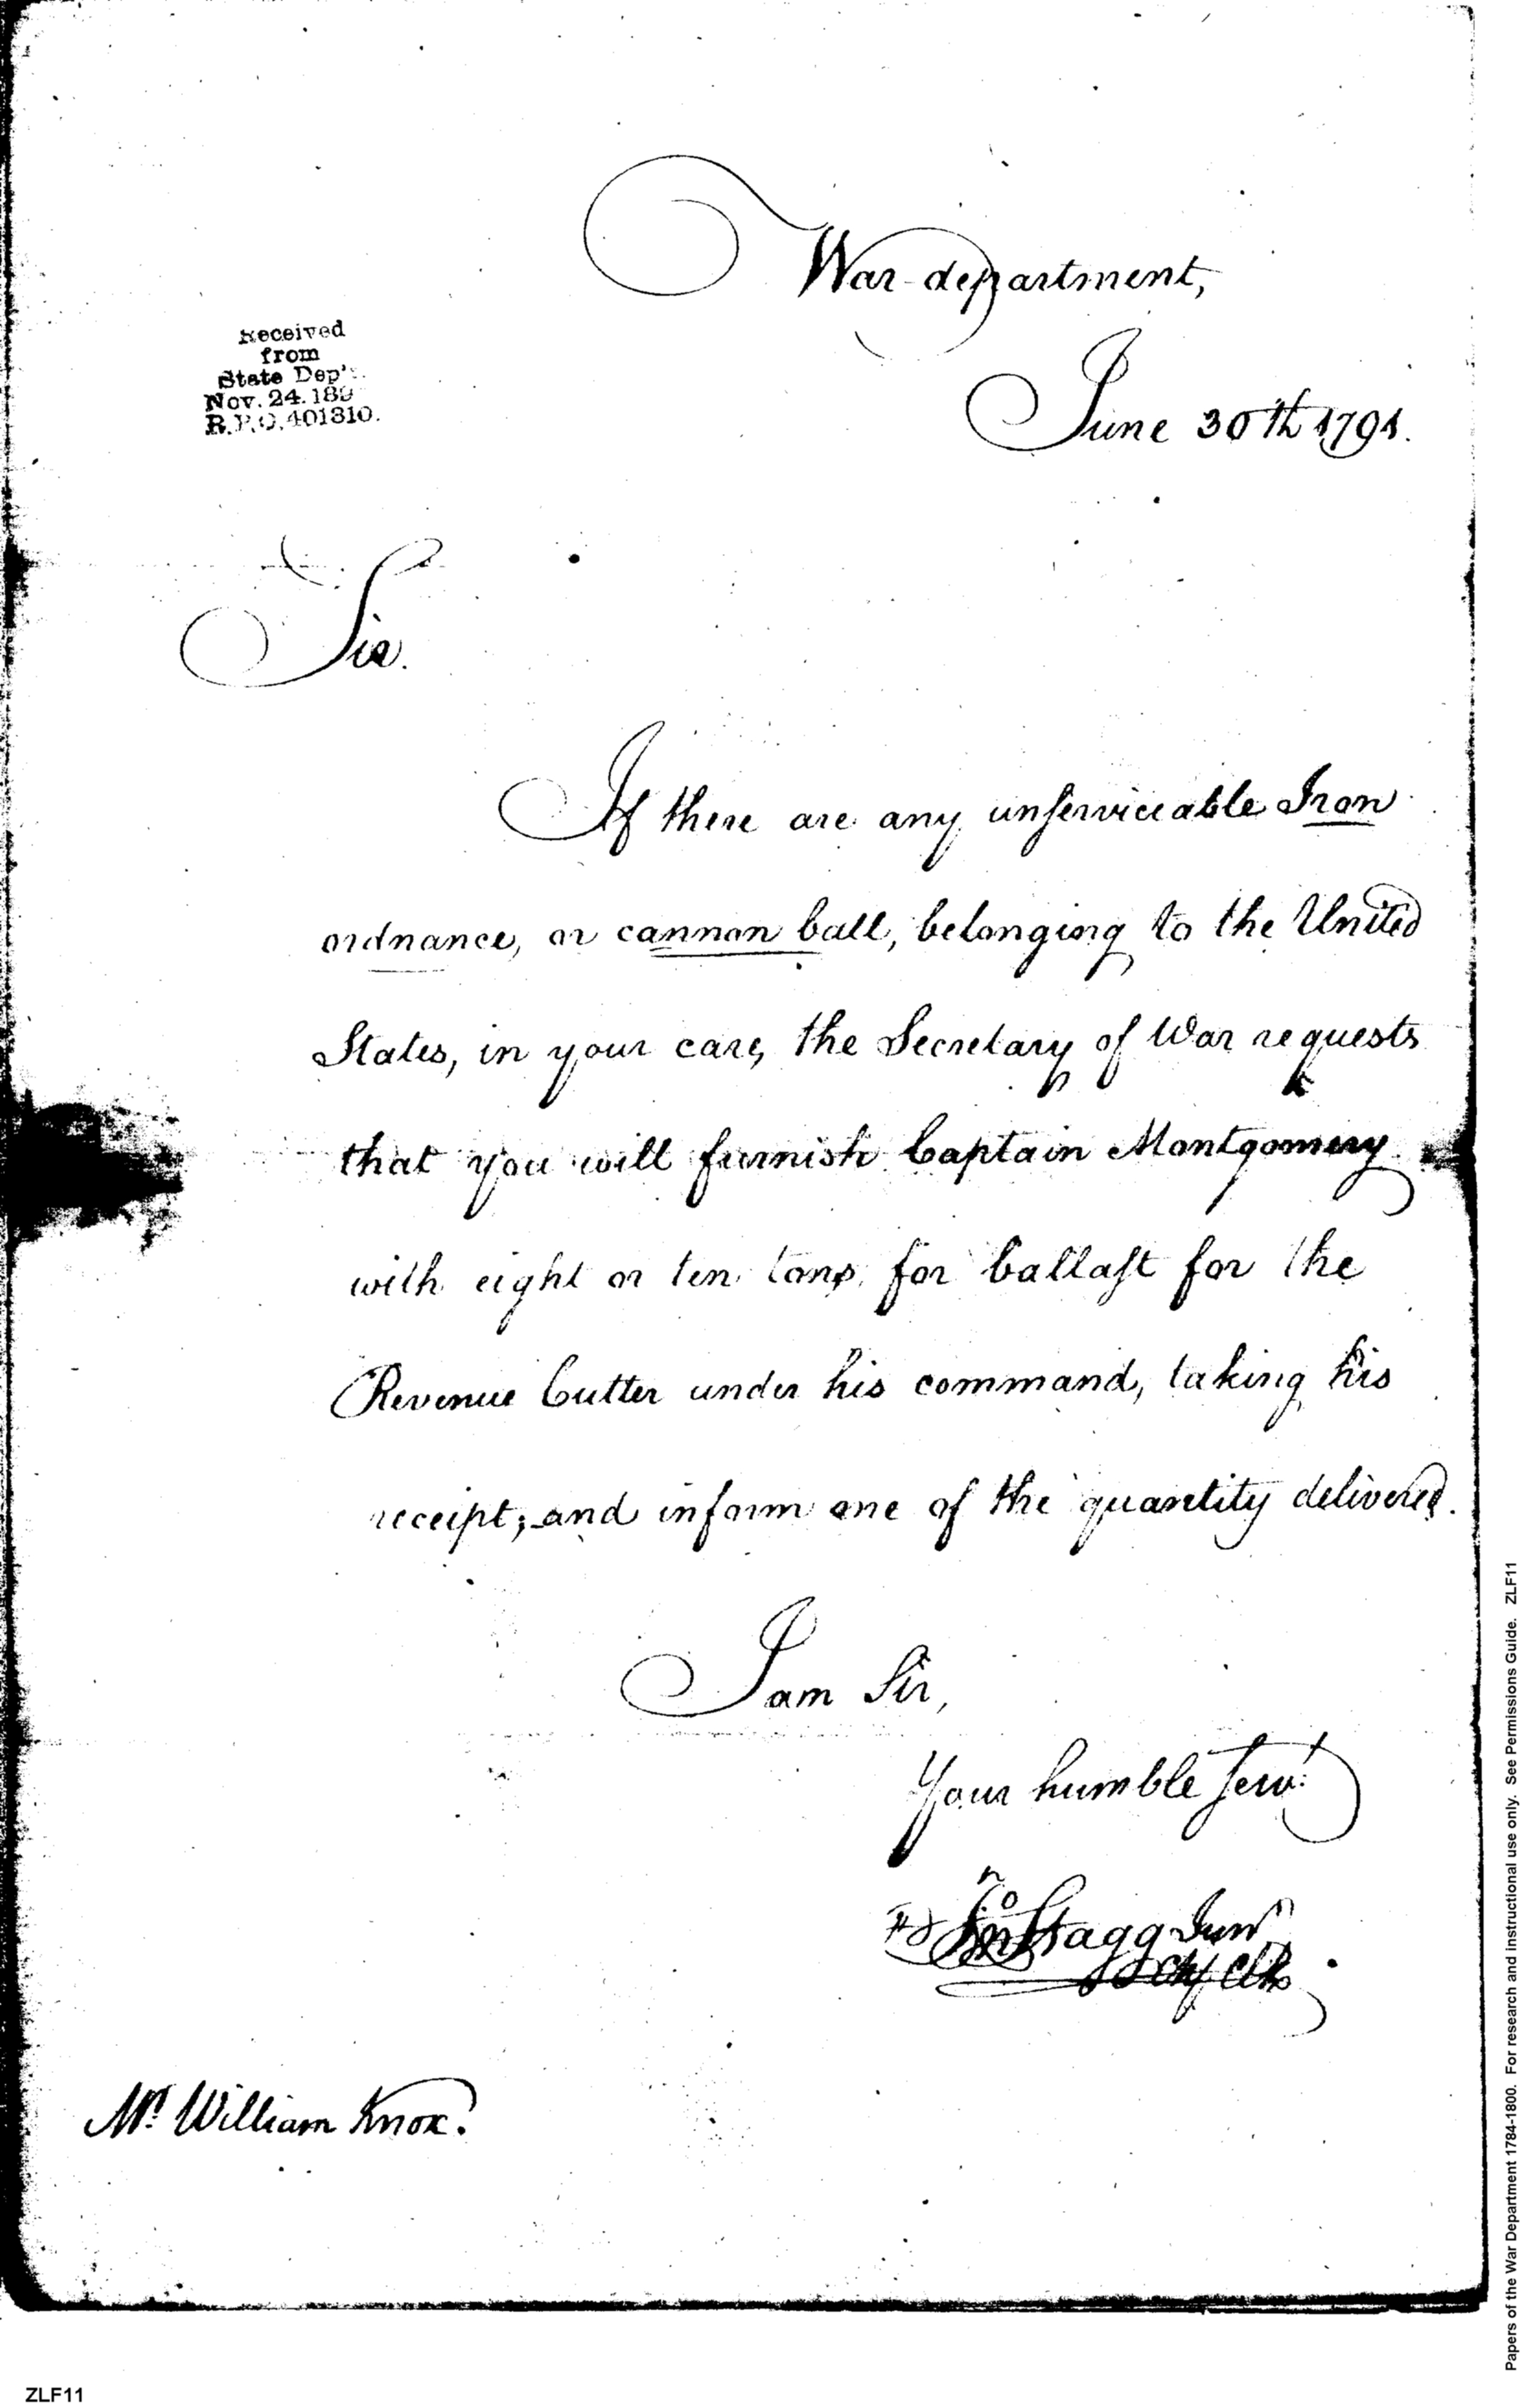 War department,
June 30th 1791.
Received
from
State Dep't.
Nov. 24. 189
R.P.O. 401310.
Sir.
If there are any unserviceable Iron
ordnance, or cannon ball, belonging to the United
States, in your care, the Secretary of War requests
that you will furnish Captain Montgomery
with eight or ten tons, for ballast for the
Revenue Cutter under his command, taking his
receipt; and inform me of the quantity delivered.
I am Sir,
Your humble Servt.
Jno Stagg Junr
Chf Clk
Mr. William Knox.
Papers of the War Department 1784-1800. For research and instructional use only. See Permissions Guide. ZLF11
ZLF11